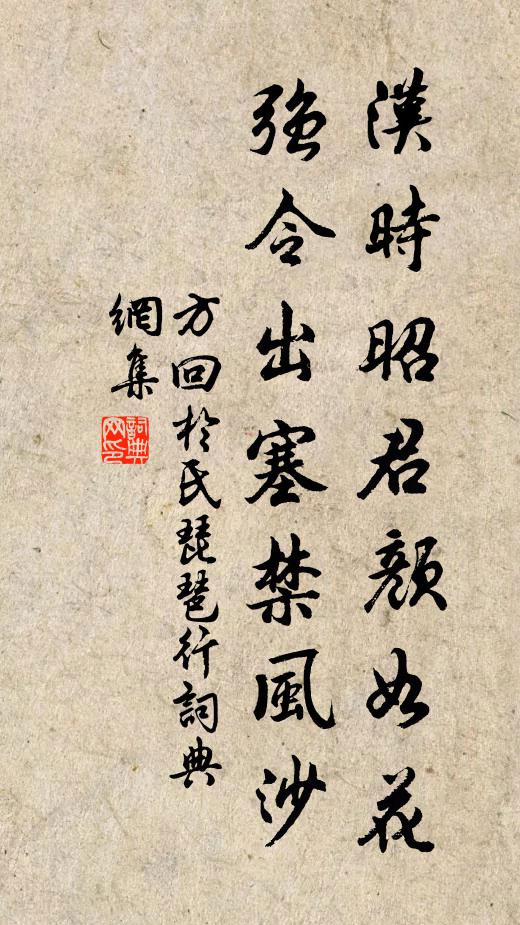 漢時昭君顏如花
強令出塞禁風沙
方回於氏琵琶行詞典
網集
詞典網印